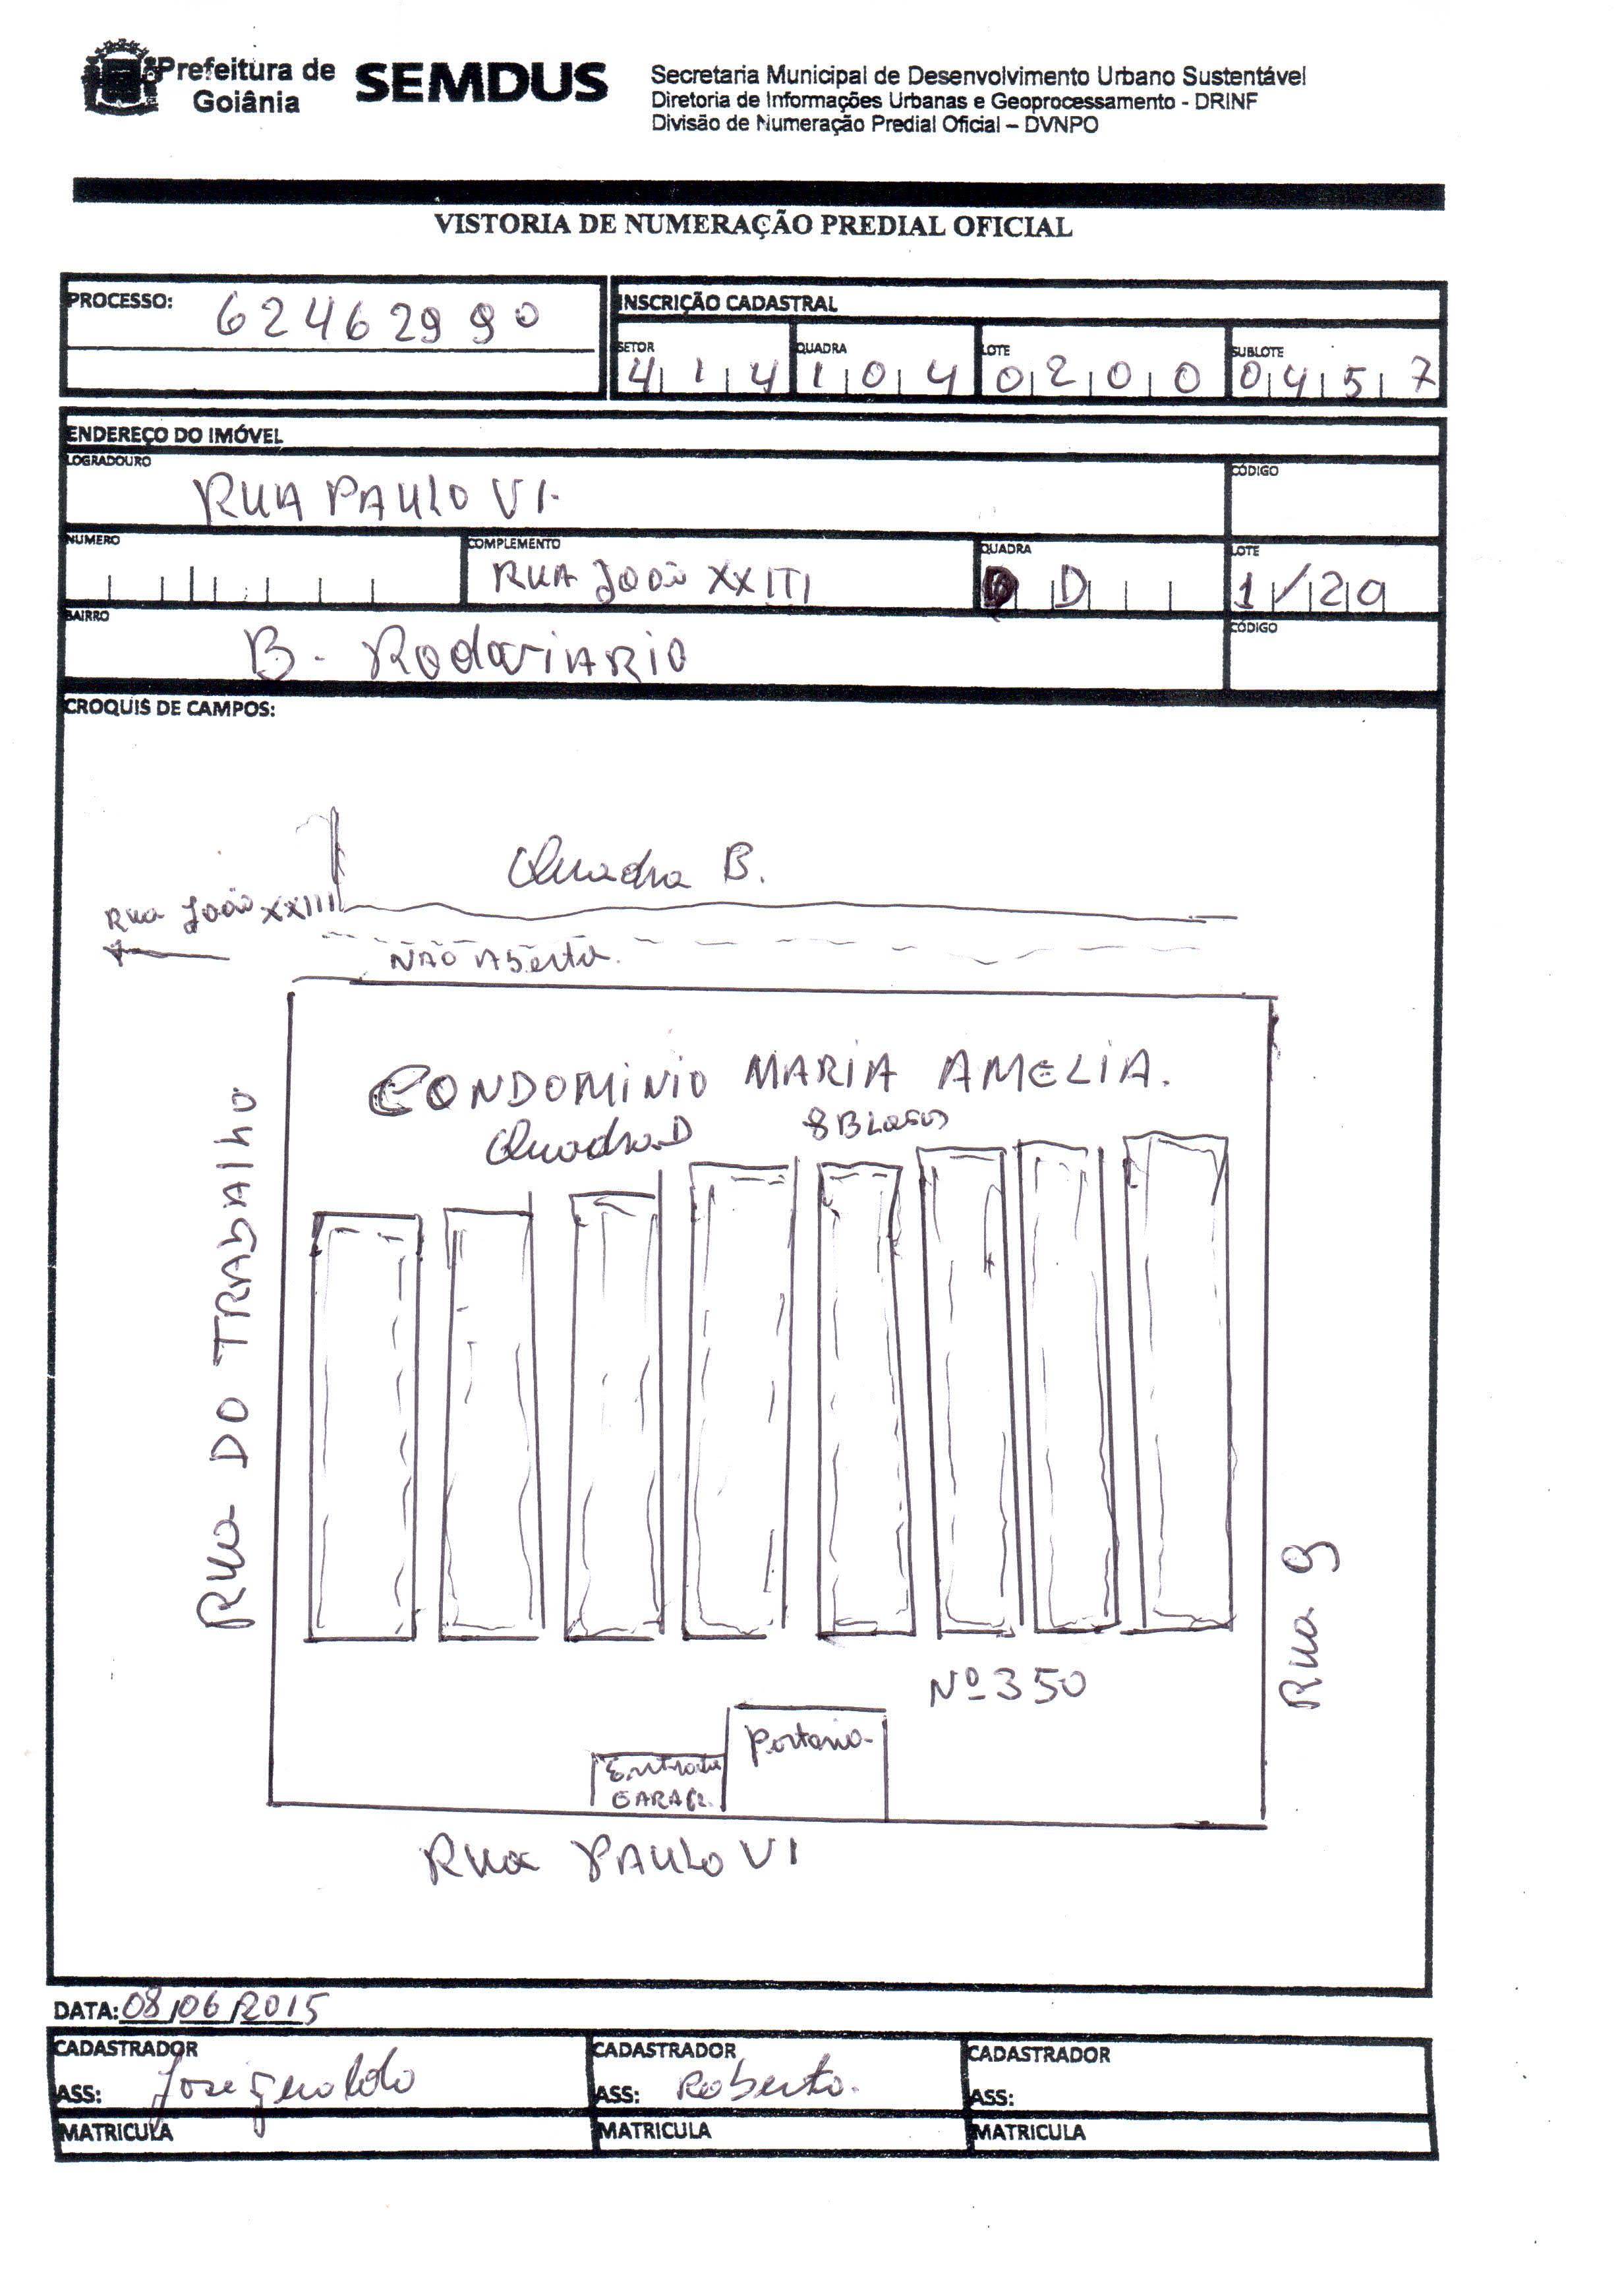 Prefeitura de Goiânia
SEMDUS
Secretaria Municipal de Desenvolvimento Urbano Sustentável
Diretoria de Informações Urbanas e Geoprocessamento - DRINF
Divisão de Numeração Predial Oficial – DVNPO
VISTORIA DE NUMERAÇÃO PREDIAL OFICIAL
PROCESSO: 62462990
INSCRIÇÃO CADASTRAL
SETOR QUADRA LOTE SUBLOTE
414 104 0200 0457
ENDEREÇO DO IMÓVEL
LOGRADOURO CÓDIGO
RUA PAULO VI.
NUMERO COMPLEMENTO QUADRA LOTE
RUA João XXIII D 1/29
BAIRRO CÓDIGO
B. RodoviARIO
CROQUIS DE CAMPOS:
Quadra B.
Rua João XXIII
NÃO Aberta.
CONDOMiNiO MARIA AMELIA.
Quadra D 8 BLocos
Rua DO TRABAlho
Rua 9
Nº 350
Portaria
Entrada
GARAG.
Rua PAULO VI
DATA: 08/06/2015
CADASTRADOR CADASTRADOR CADASTRADOR
ASS: José Geraldo ASS: Roberto. ASS:
MATRICULA MATRICULA MATRICULA